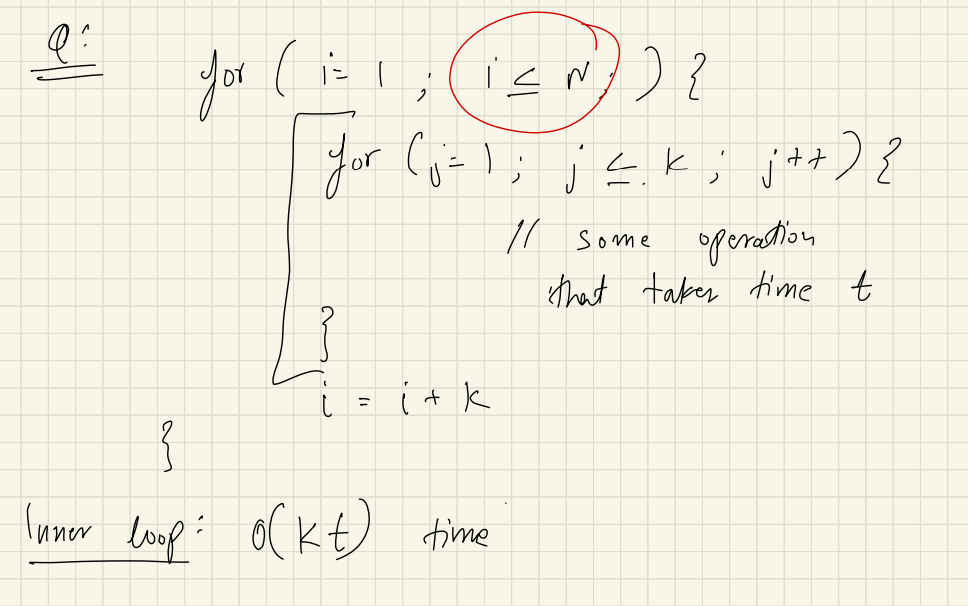 Q:
for ( i= 1 ; i ≤ N; ) {
for (j=1; j ≤ k ; j++) {
// some operation
that takes time t
}
i = i + k
}
Inner loop: O(kt) time